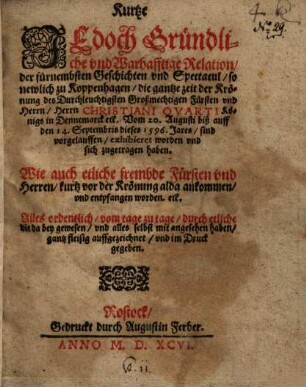 Kurtze
N. 29.
JEdoch Gründli-
che vnd Warhafftige Relation/
der fürnembsten Geschichten vnd Spectacul/ so
newlich zu Koppenhagen/ die gantze zeit der Krö-
nung des Durchleuchtigsten Großmechtigen Fürsten vnd
Herrn/ Herrn CHRISTIANI QVARTI Kö-
nigs in Dennemarck etc. Vom 20. Augusti biß auff
den 14. Septembris dieses 1596. Jares/ sind
vorgelauffen/ exhibieret worden vnd
sich zugetragen haben.
Wie auch etliche frembde Fürsten vnd
Herren/ kurtz vor der Kröning alda ankommen/
vnd entpfangen worden. etc.
Alles ordentlich/ vom tage zu tage/ durch etliche
die da bey gewesen/ vnd alles selbst mit angesehen haben/
gantz fleisig auffgezeichnet/ vnd im Druck
gegeben.
Rostock/
Gedruckt durch Augustin Ferber.
ANNO M. D. XCVI.